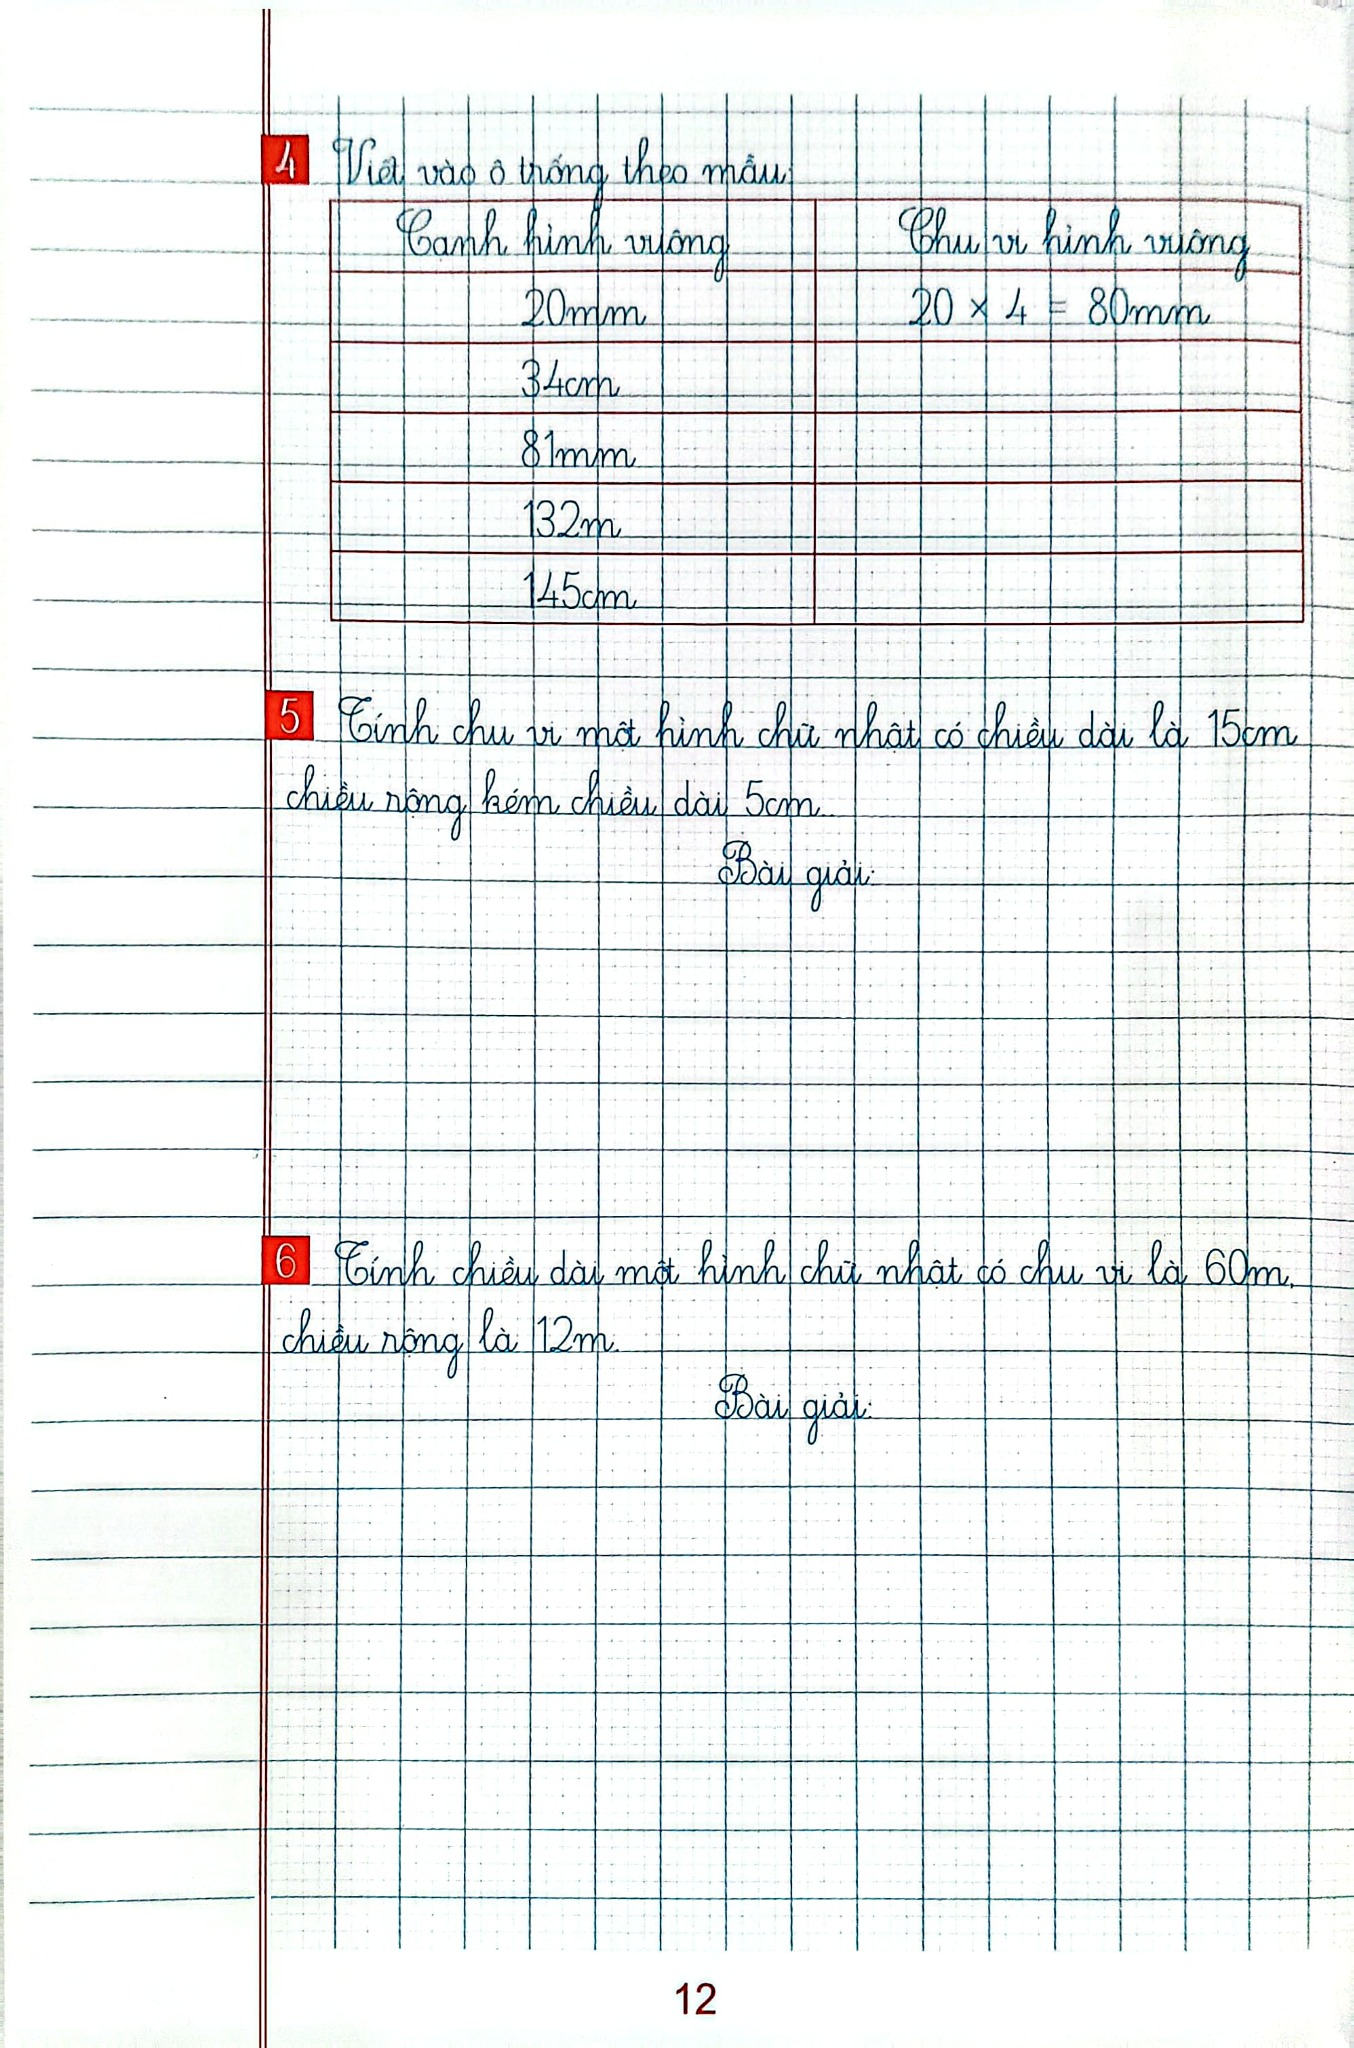 4 Viết vào ô trống theo mẫu:
Cạnh hình vuông Chu vi hình vuông
20mm 20 × 4 = 80mm
34cm
81mm
132m
145cm
5 Tính chu vi một hình chữ nhật có chiều dài là 15cm
chiều rộng kém chiều dài 5cm.
Bài giải:
6 Tính chiều dài một hình chữ nhật có chu vi là 60m,
chiều rộng là 12m.
Bài giải:
12